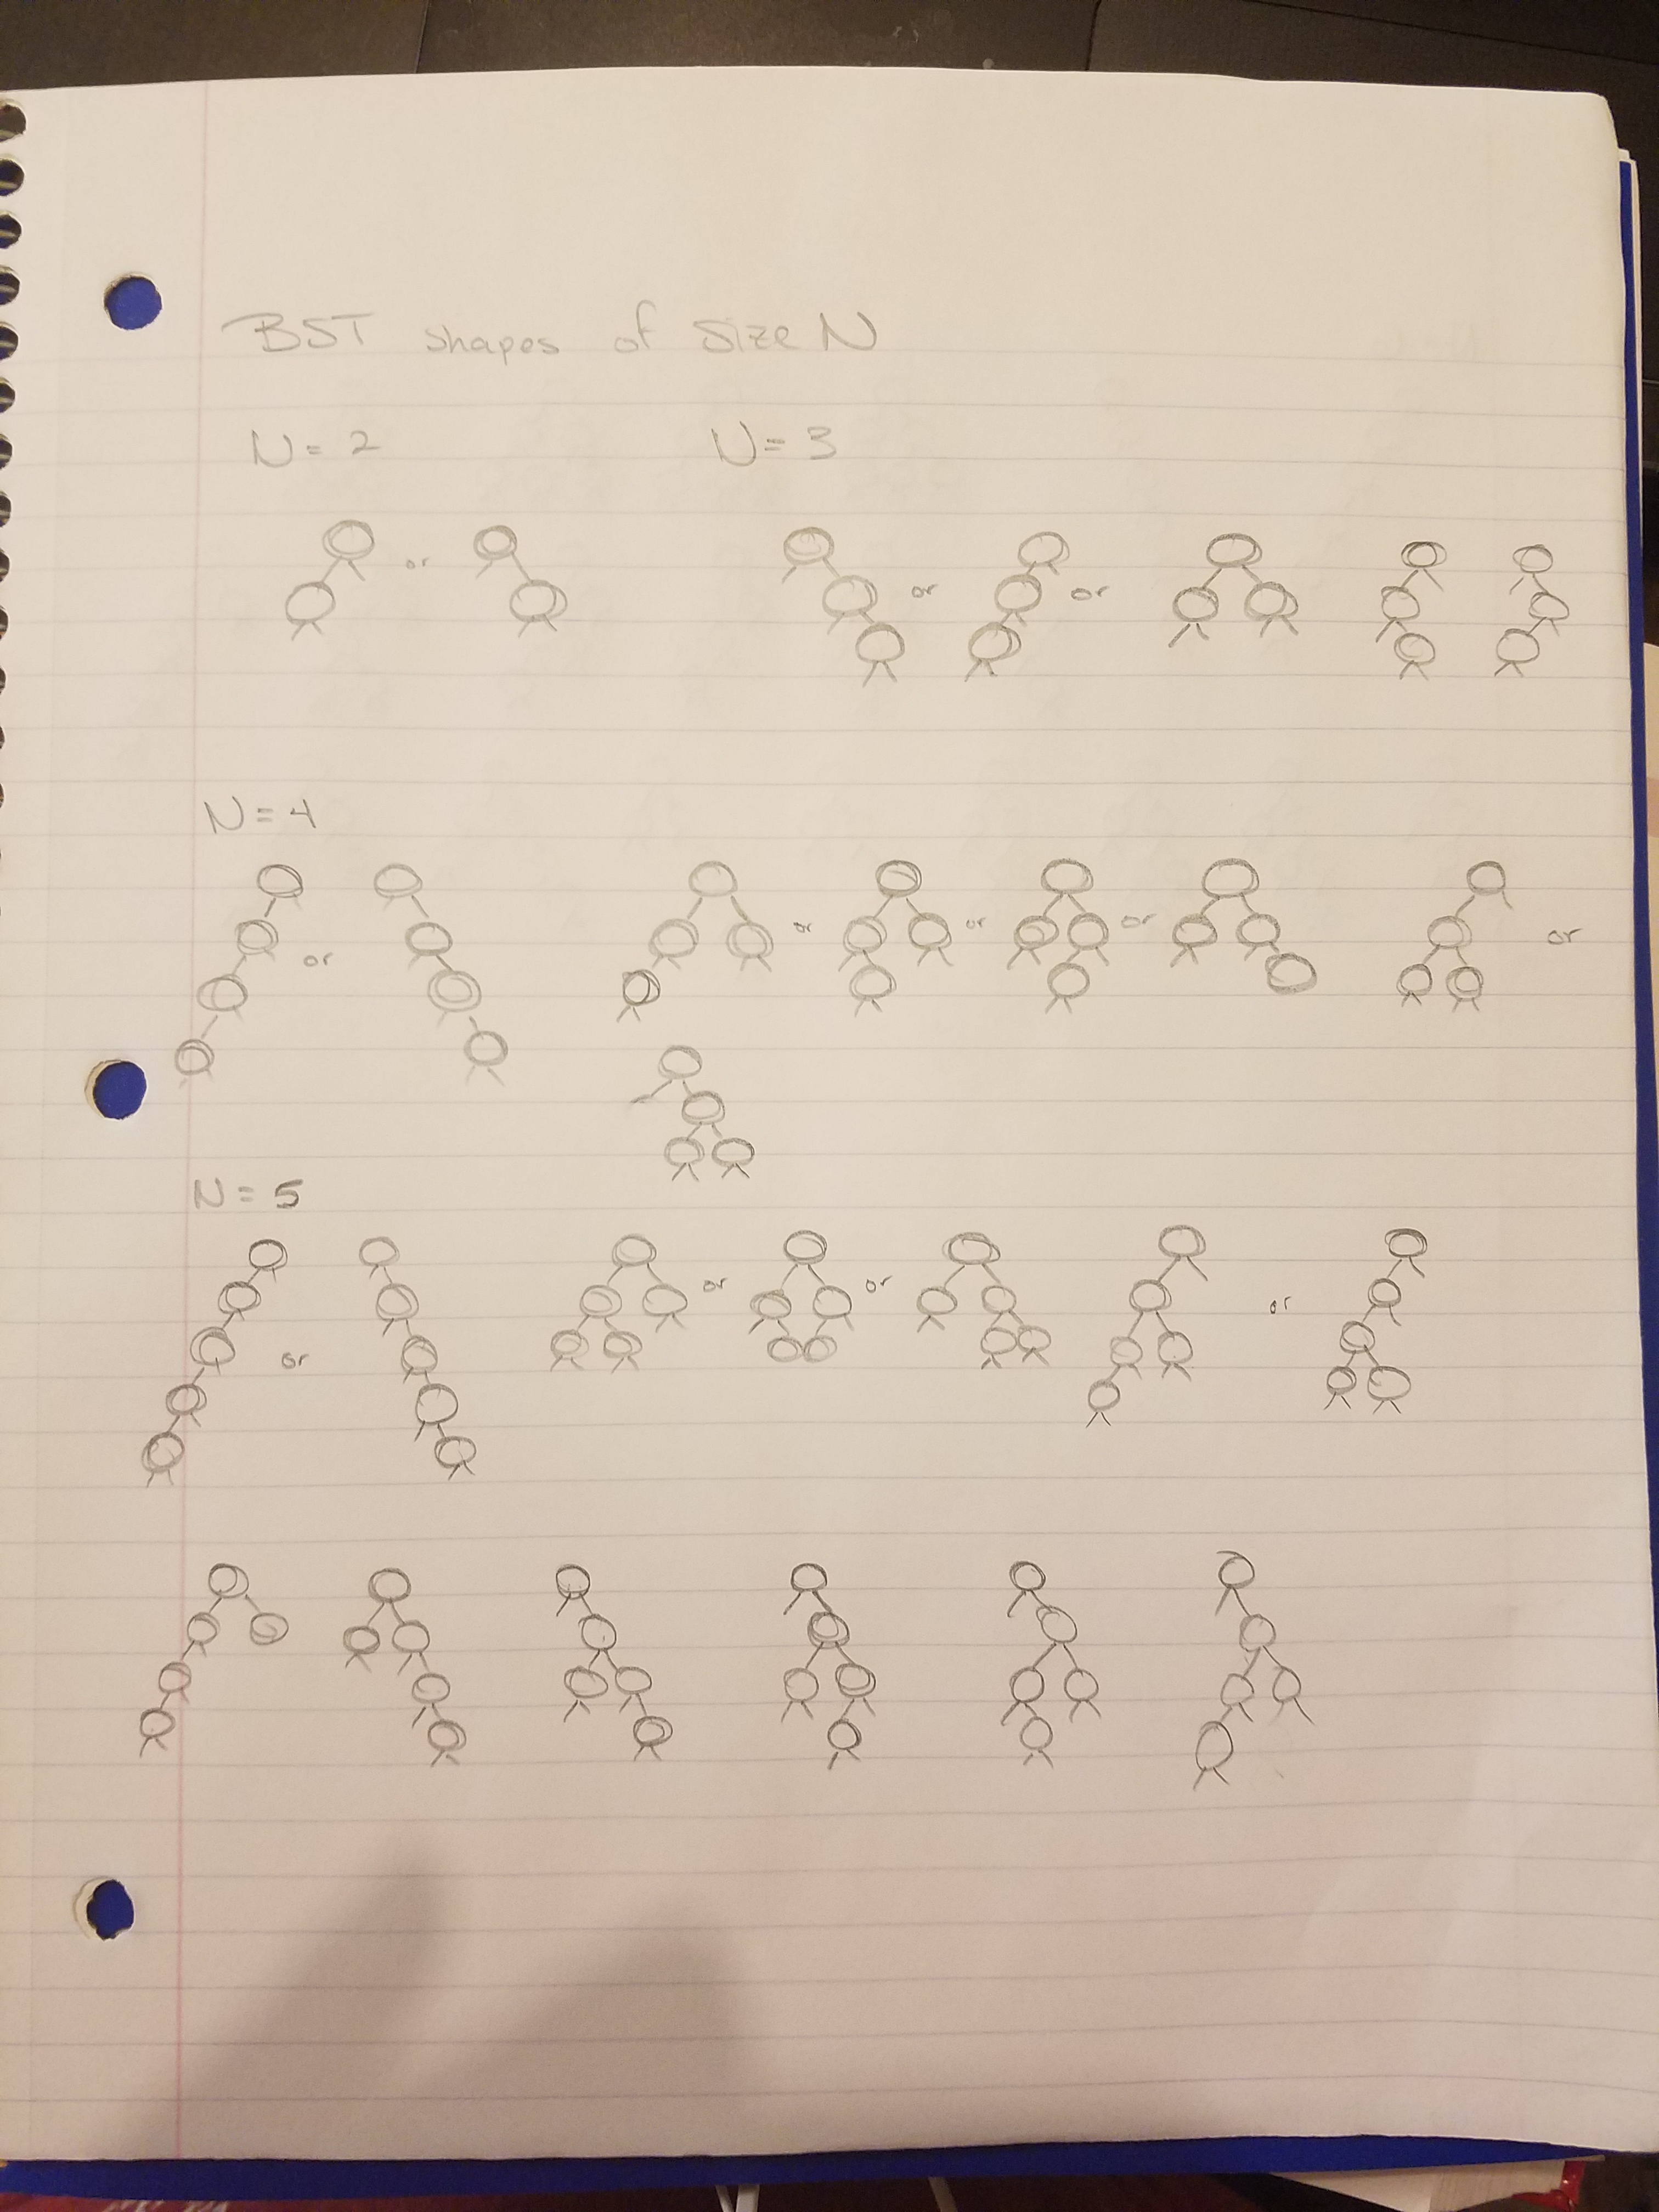 BST shapes of size N
N = 2 N = 3
or or or
N = 4
or or or or or
N = 5
or or or or